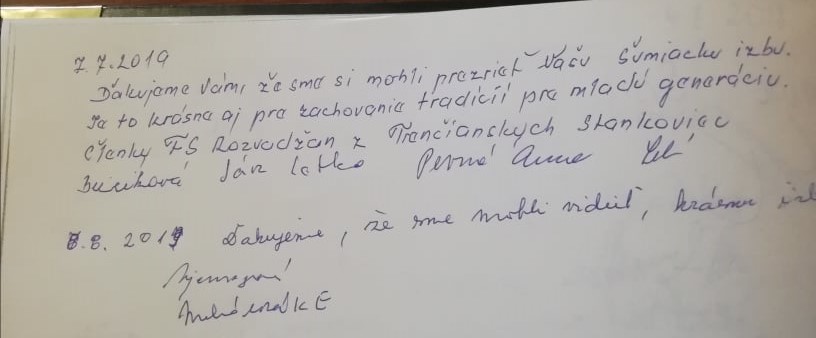 7.7.2019
Ďakujeme Vám, že sme si mohli prezrieť Vašu Šumiacku izbu.
Je to krásne aj pre zachovanie tradícií pre mladú generáciu.
členky FS Rozvadžan z Trenčianských Stankoviec
Ján Letko Anna
8.8. 2019 Ďakujeme, že sme mohli vidieť, krásnu